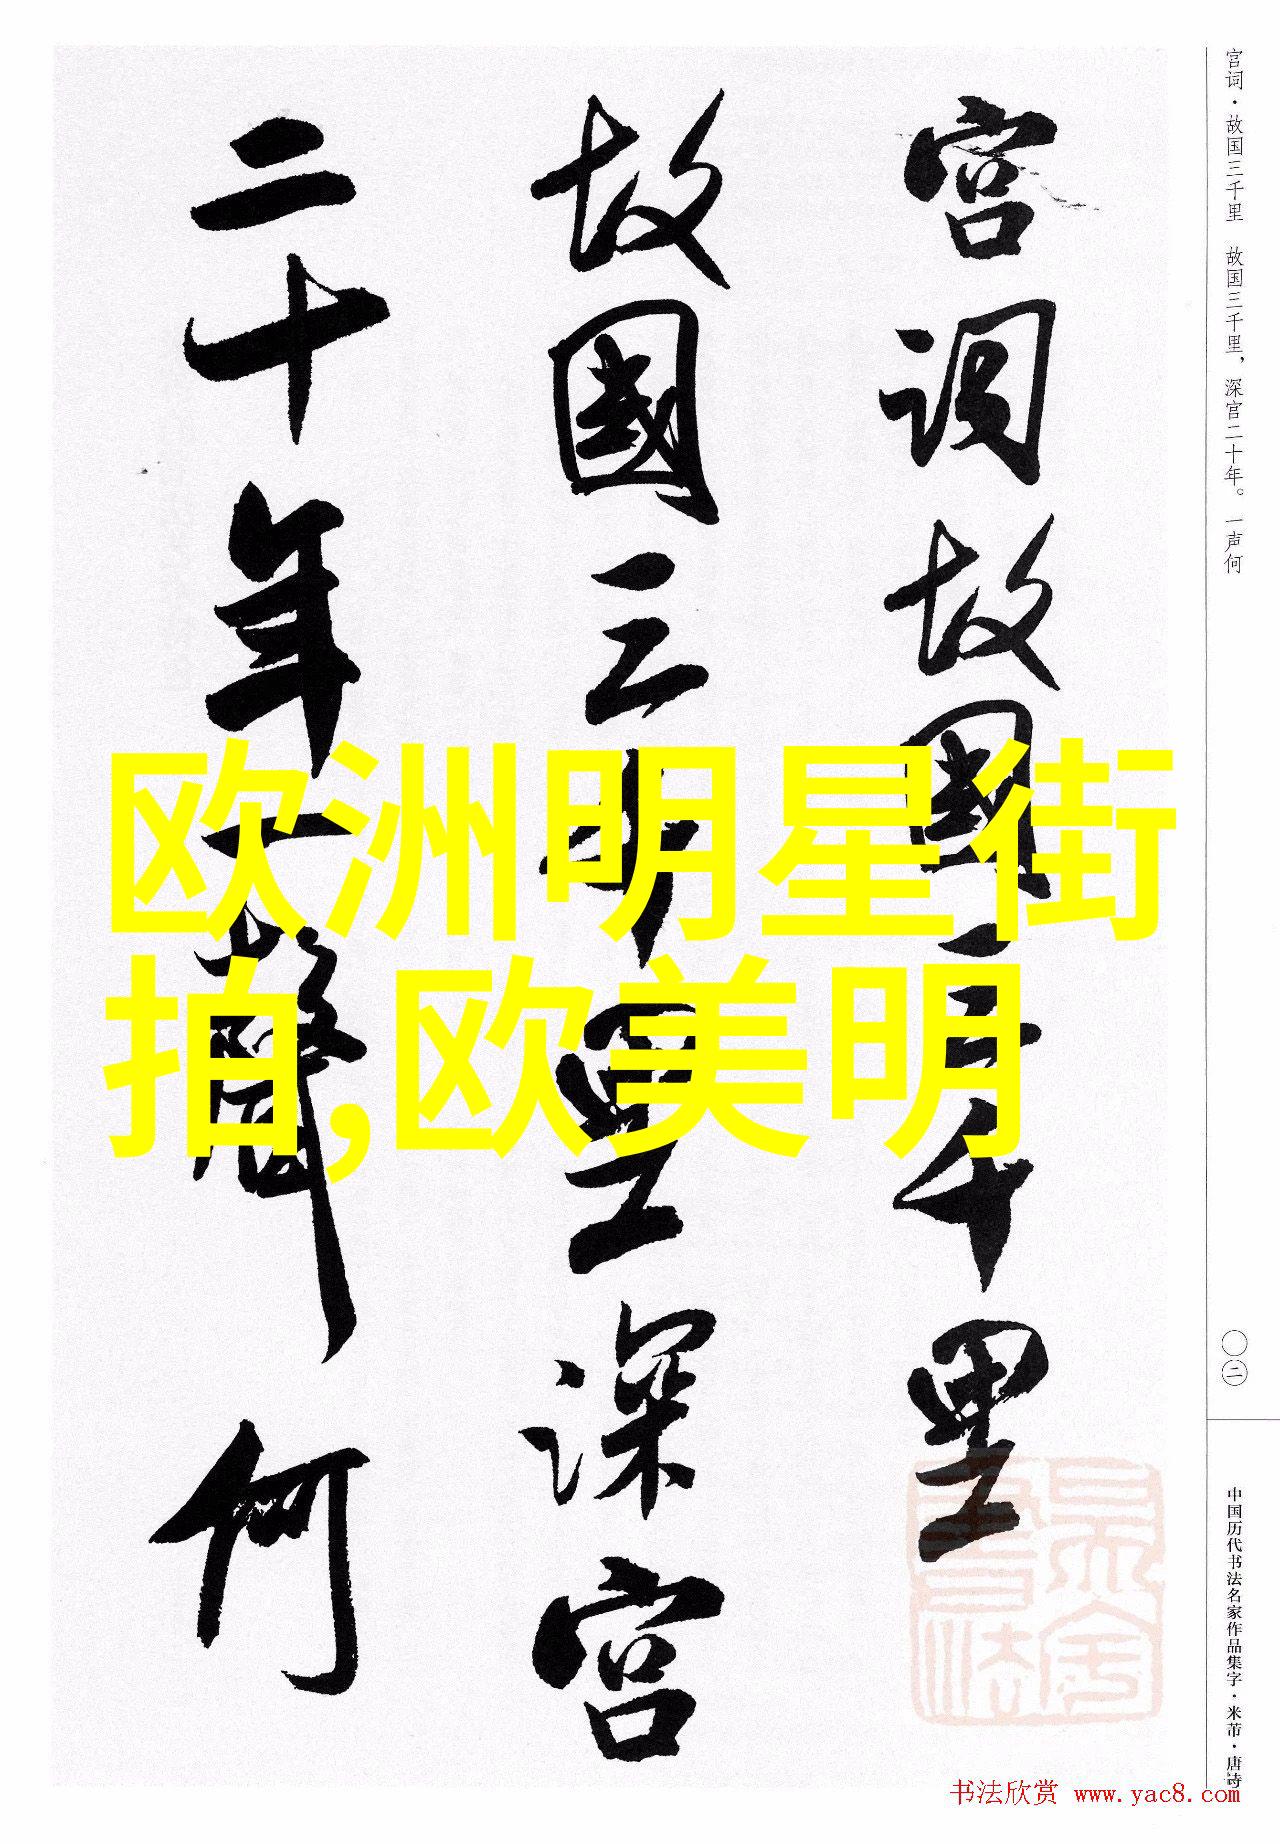 宫词故国三千里
故國三千里深宫
二十年一聲何
欧洲明星街
拍,欧美明
宫词·故国三千里 故国三千里，深宫二十年。一声何
〇二
中国历代书法名家作品集字·米芾·唐诗
书法欣赏 www.yac8.com